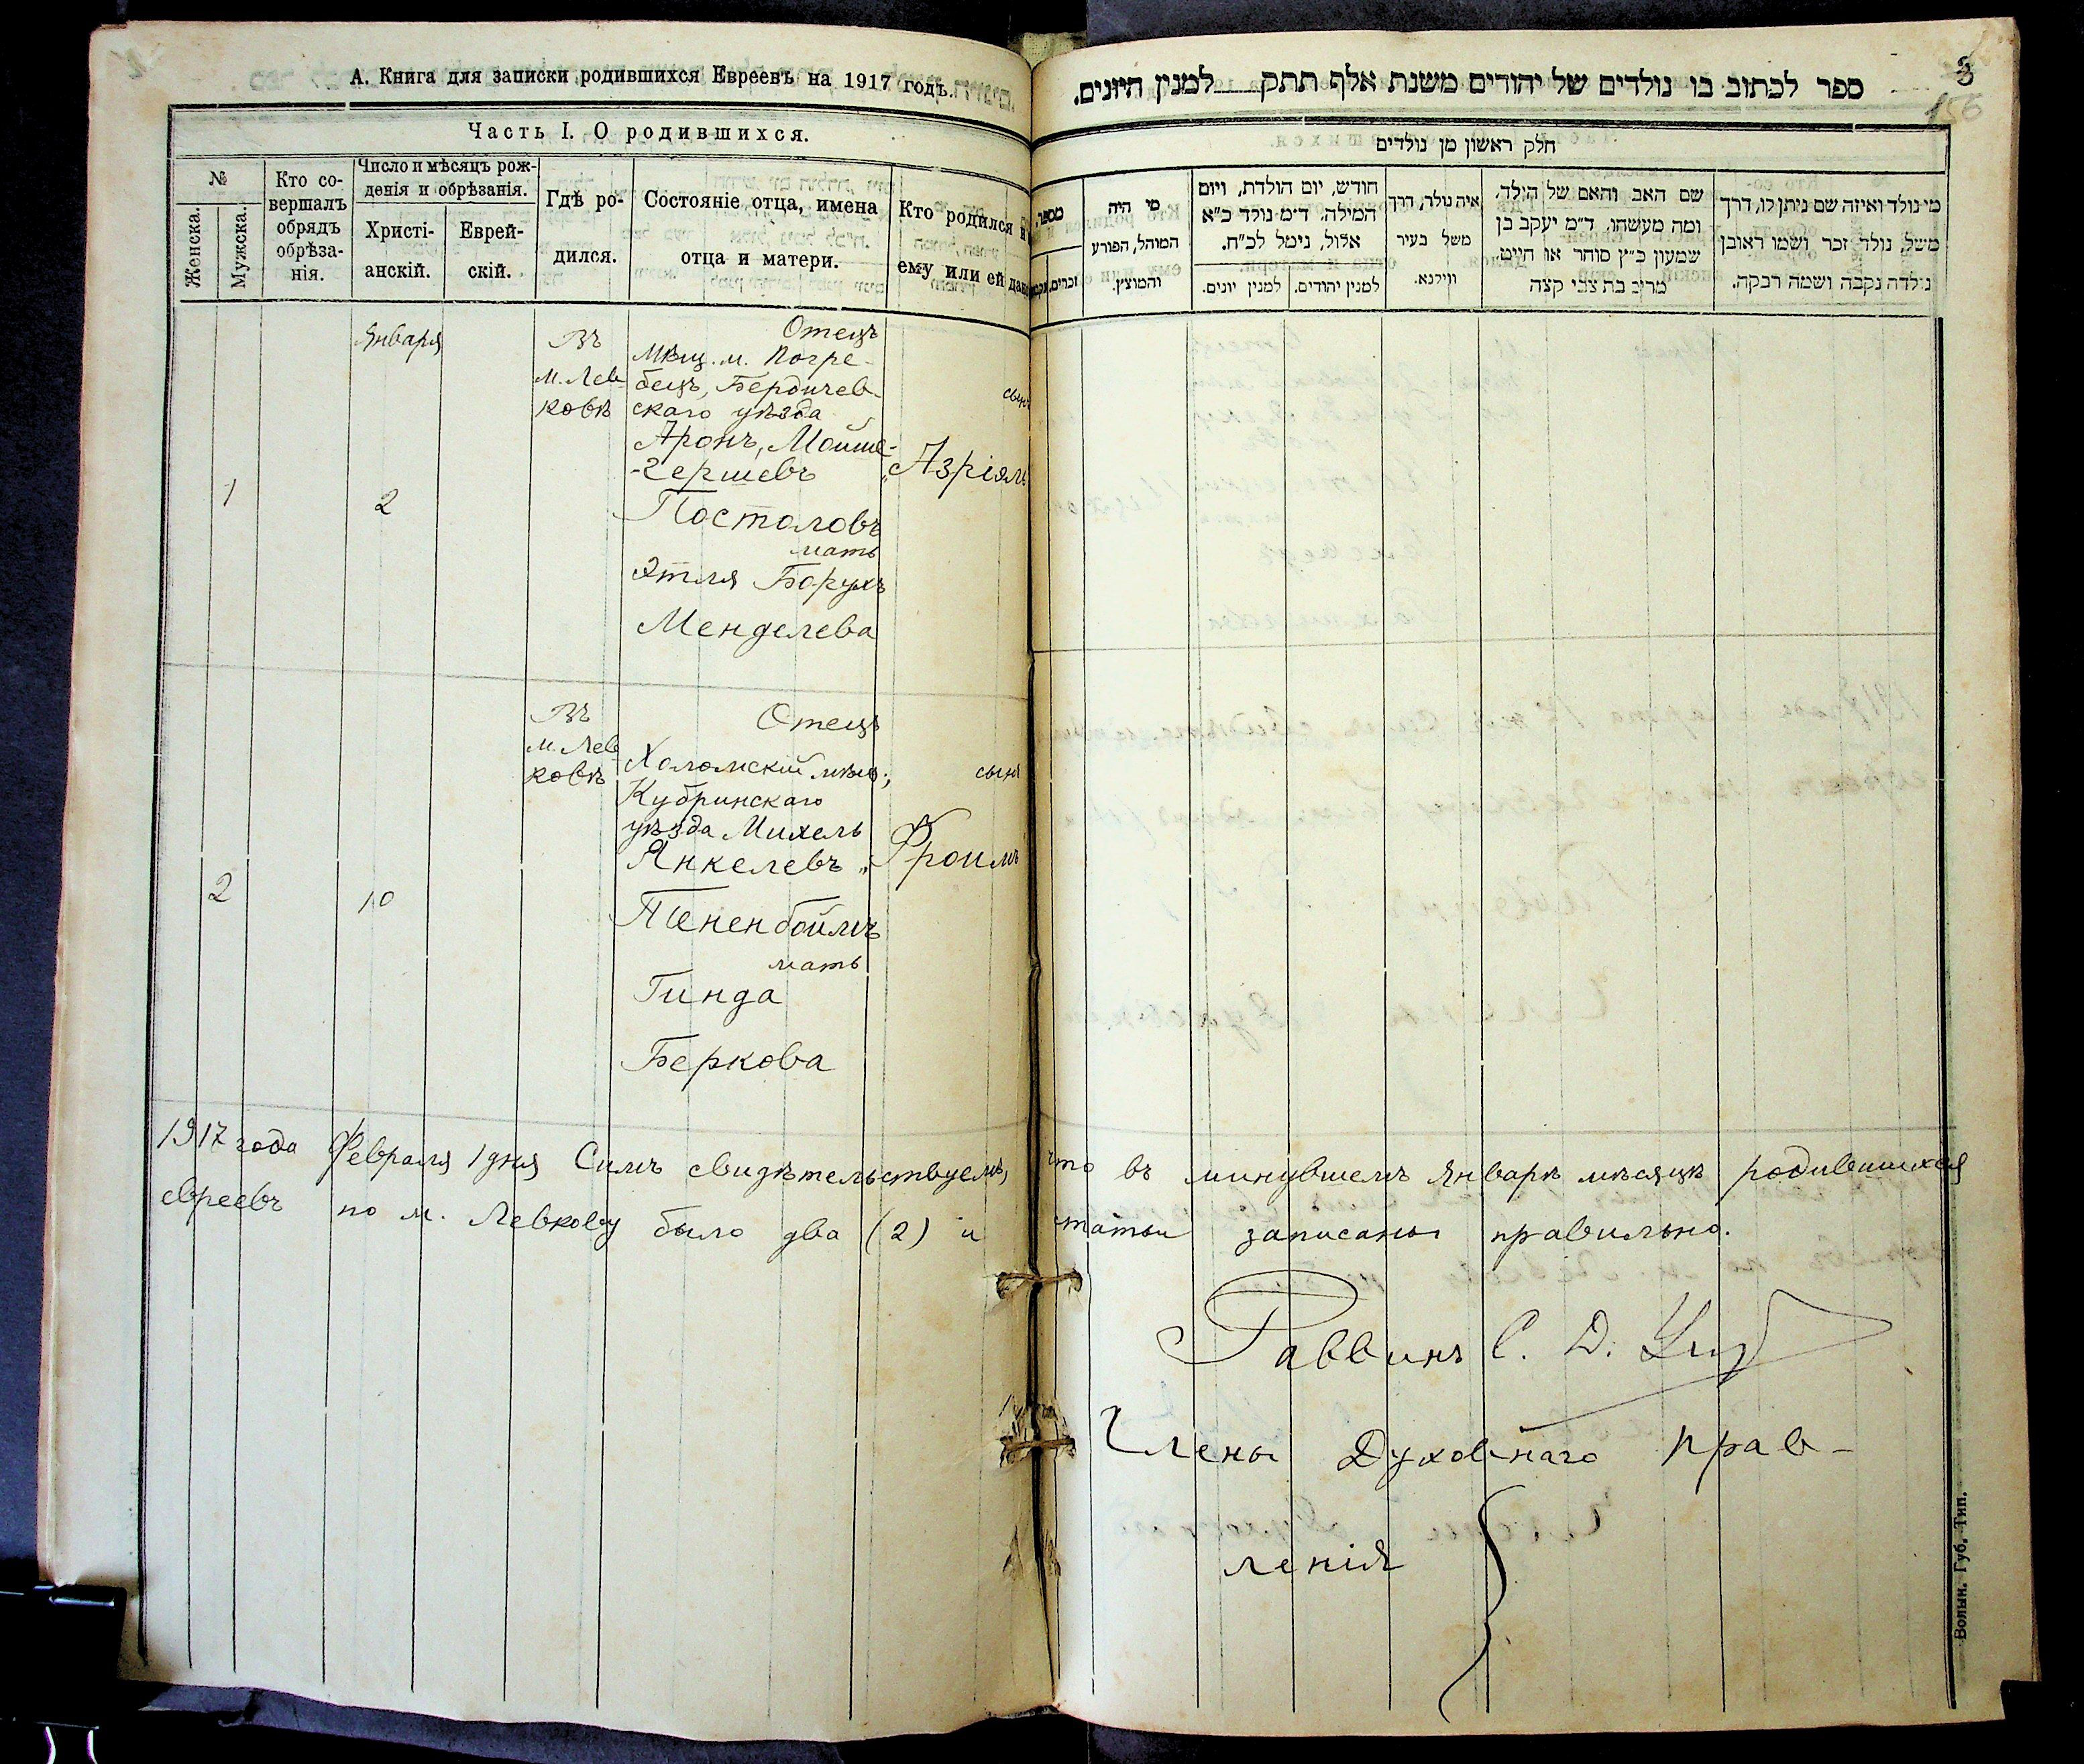 А. Книга для записки родившихся Евреевъ на 1917 годъ.
Часть I. О родившихся.
№
Женска.
Мужска.
Кто со-
вершалъ
обрядъ
обрѣза-
нія.
Число и мѣсяцъ рож-
денія и обрѣзанія.
Христі-
анскій.
Еврей-
скій.
Гдѣ ро-
дился.
Состояніе отца, имена
отца и матери.
Кто родился и
ему или ей дано
Января
Въ
м. Лев-
ковѣ
Отецъ
мѣщ. м. Погре-
бецъ, Бердичев-
скаго уѣзда
Аронъ, Мойше-
-Гершевъ
Постоловъ
мать
Этля Борухъ
Менделева
сынъ
„Азріялъ
1
2
Въ
м. Лев-
ковѣ
Отецъ
Холомскій мѣщ.,
Кубринскаго
уѣзда Михель
Янкелевъ
Тененбоймъ
мать
Гинда
Беркова
сынъ
„Фроимъ
2
10
1917 года Февраля 1 дня Симъ свидѣтельствуемъ, что въ минувшемъ Январѣ мѣсяцѣ родившихся
евреевъ по м. Левкову было два (2) и статьи записаны правильно.
Раввинъ С. D.
Члены Духовнаго прав-
ленія
ספר לכתוב בו נולדים של יהודים משנת אלף תתק למנין היונים.
3
156
חלק ראשון מן נולדים
מספר
זכרים.
מי היה
המוהל, הפורע
והמוצץ.
חודש, יום הולדת, ויום
המילה. ד״מ נולד כ״א
אלול, נימל לכ״ח.
למנין יונים.
למנין יהודים.
איה נולד, דרך
משל בעיר
ווילנא.
שם האב והאם של הילד,
ומה מעשהו. ד״מ יעקב בן
שמעון כ״ץ סוחר או חייט.
מרים בת צבי קצה
מי נולד ואיזה שם ניתן לו, דרך
משל, נולד זכר ושמו ראובן
נולדה נקבה ושמה רבקה.
Волын. Губ. Тип.